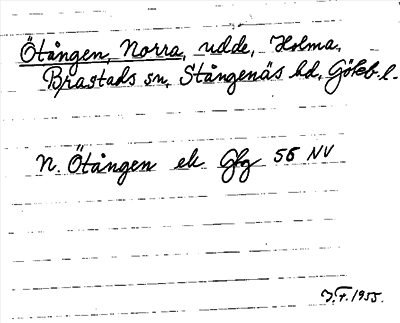 Ötången, Norra, udde, Holma,
Brastads sn, Stångenäs hd, Göteb. l.
N. Ötången ek Gbg 55 NV
J.F. 1955.